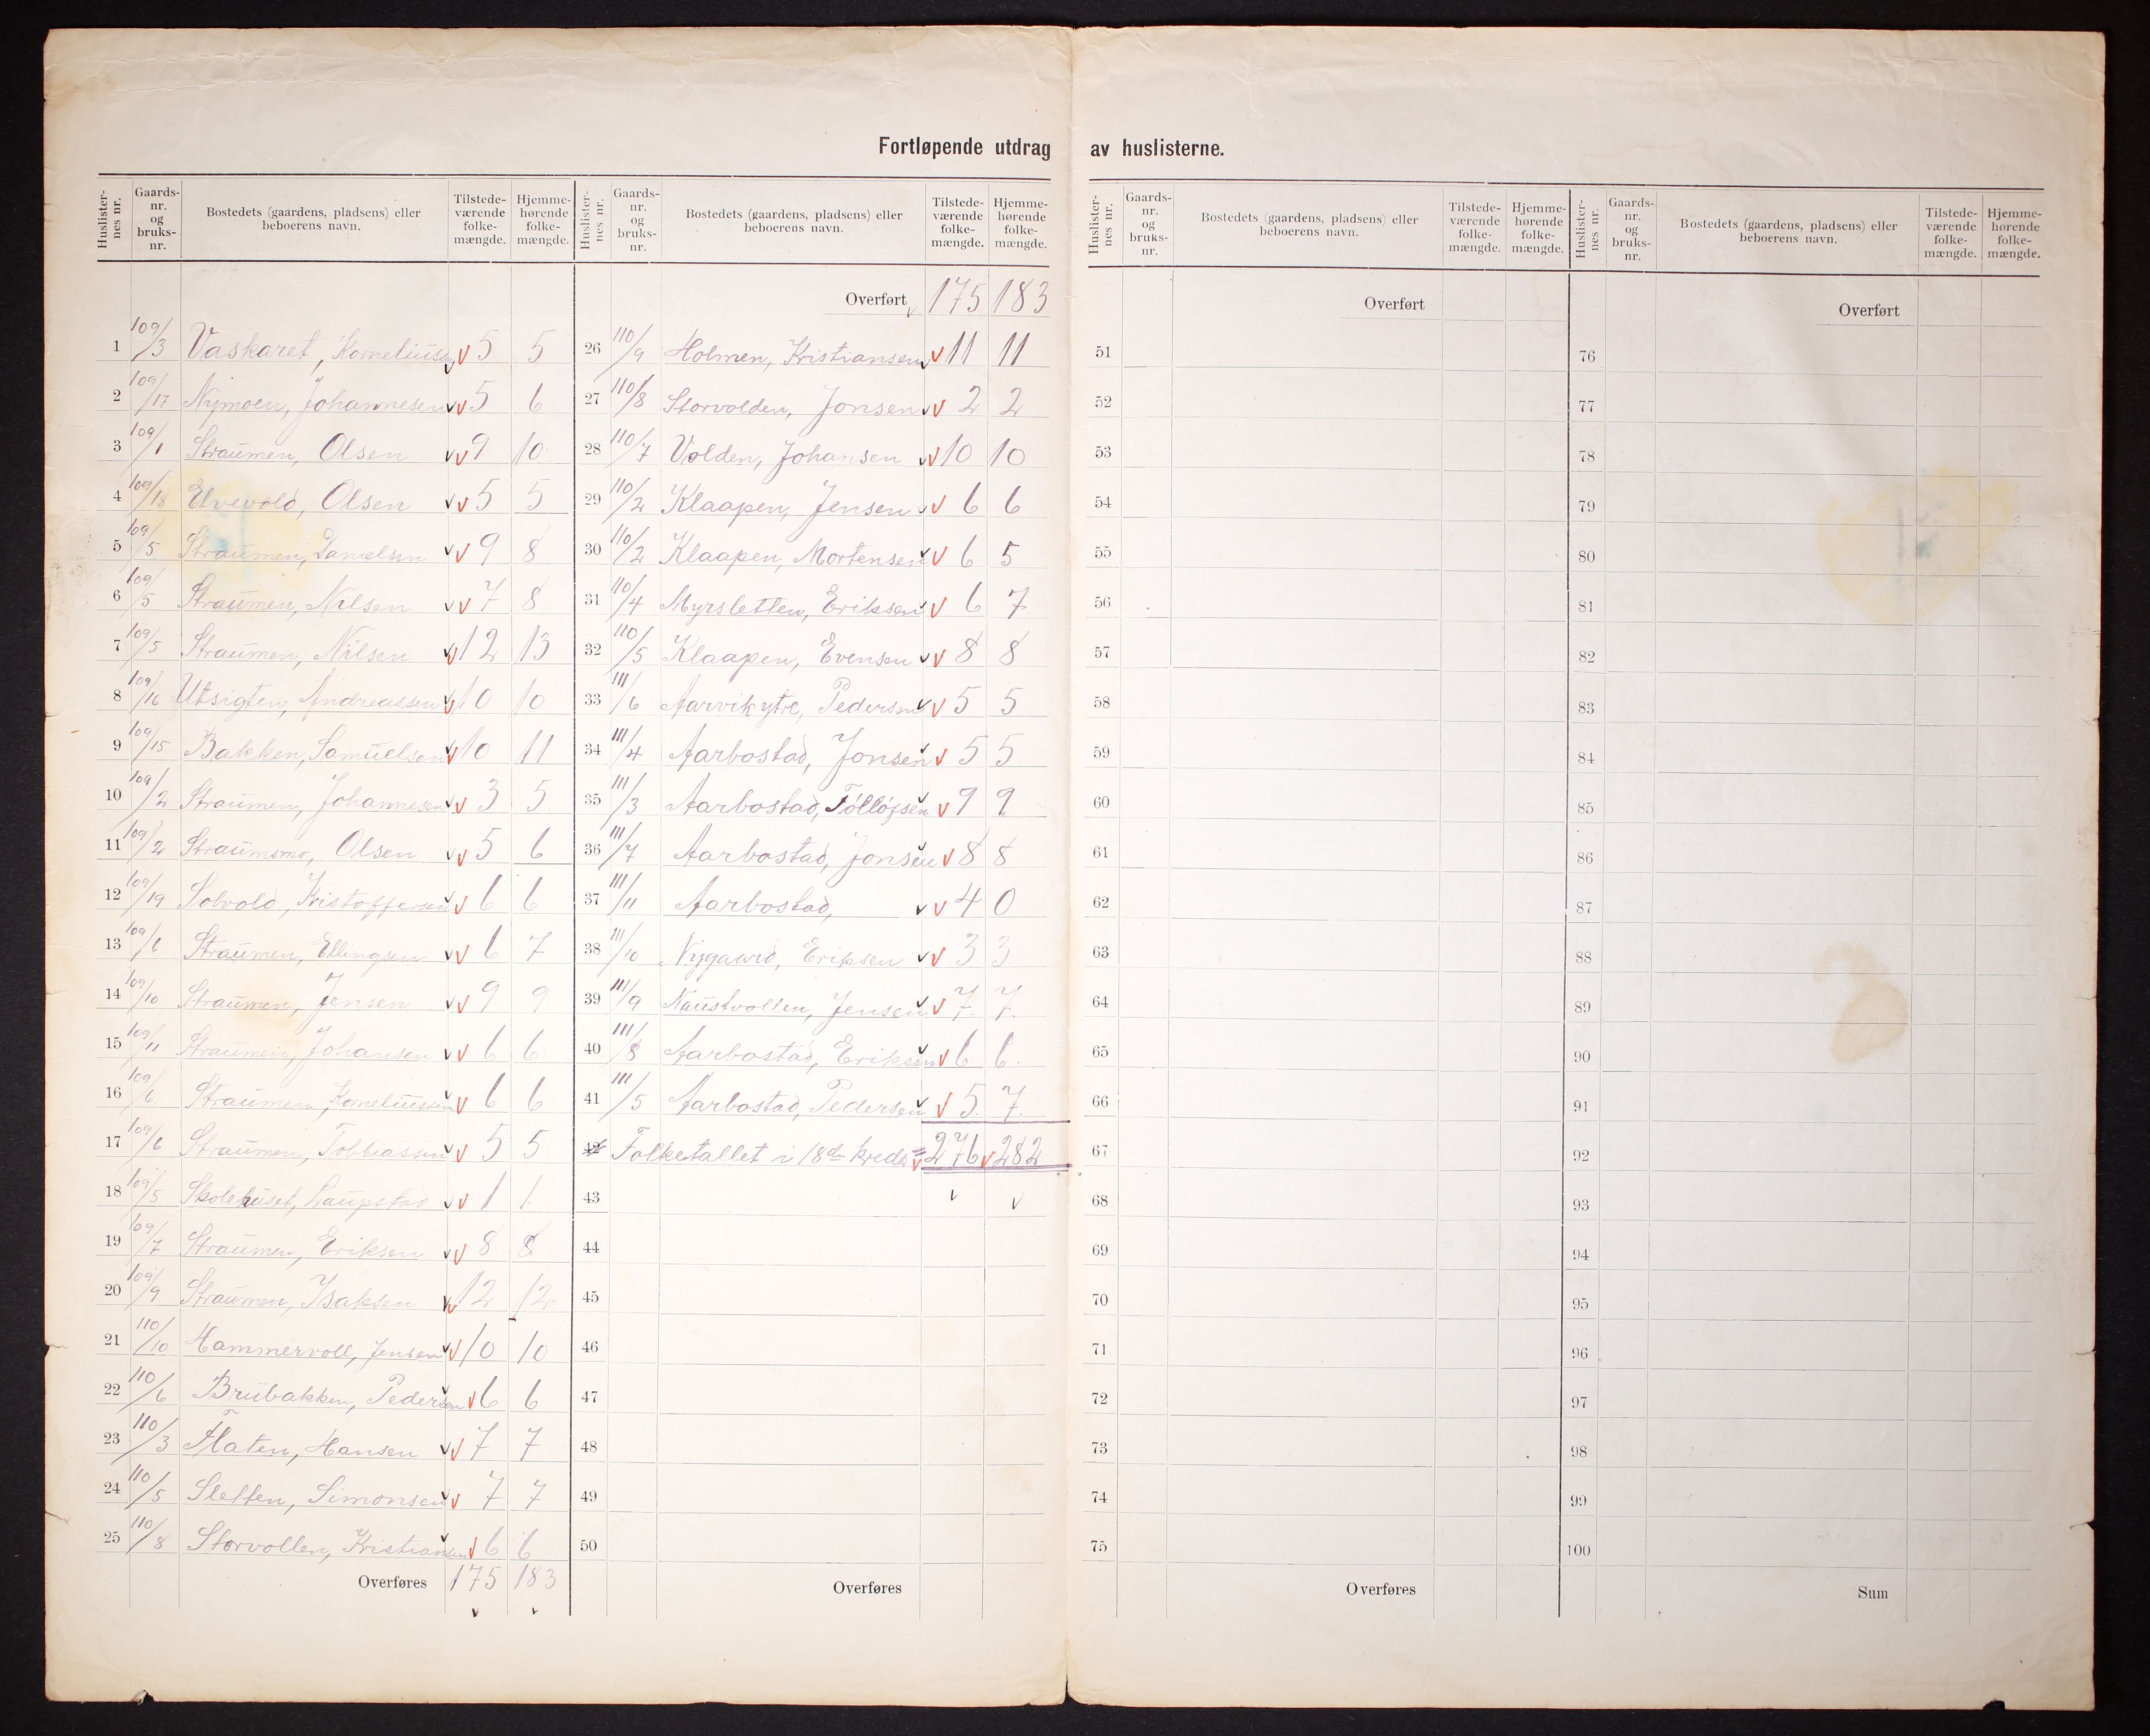 Fortløpende utdrag av huslisterne.
Huslister-nes nr. Gaards-nr. og bruks-nr. Bostedets (gaardens, pladsens) eller beboerens navn. Tilstede-værende folke-mængde. Hjemme-hørende folke-mængde.
1 109/3 Vaskaret, Korneliussen 5 5
2 109/17 Nymoen, Johannesen 5 6
3 109/1 Straumen, Olsen 9 10
4 109/18 Elvevold, Olsen 5 5
5 109/5 Straumen, Danielsen 9 8
6 109/5 Straumen, Nilsen 7 8
7 109/5 Straumen, Nilsen 12 13
8 109/16 Utsigten, Andreassen 10 10
9 109/15 Bakken, Samuelsen 10 11
10 109/2 Straumen, Johannesen 3 5
11 109/2 Straumsmo, Olsen 5 6
12 109/19 Solvold, Kristoffersen 6 6
13 109/6 Straumen, Ellingsen 6 7
14 109/10 Straumen, Jensen 9 9
15 109/11 Straumen, Johansen 6 6
16 109/6 Straumen, Korneliussen 6 6
17 109/6 Straumen, Tobbiassen 5 5
18 109/5 Skolehuset, Laupstad 1 1
19 109/7 Straumen, Eriksen 8 8
20 109/9 Straumen, Isaksen 12 12
21 110/10 Hammervoll, Jensen 10 10
22 110/6 Brubakken, Pedersen 6 6
23 110/3 Flaten, Hansen 7 7
24 110/5 Sletten, Simonsen 7 7
25 110/8 Storvollen, Kristiansen 6 6
Overføres 175 183
Huslister-nes nr. Gaards-nr. og bruks-nr. Bostedets (gaardens, pladsens) eller beboerens navn. Tilstede-værende folke-mængde. Hjemme-hørende folke-mængde.
Overført 175 183
26 110/9 Holmen, Kristiansen 11 11
27 110/8 Storvolden, Jonsen 2 2
28 110/7 Volden, Johansen 10 10
29 110/2 Klaapen, Jensen 6 6
30 110/2 Klaapen, Mortensen 6 5
31 110/4 Myrsletten, Eriksen 6 7
32 110/5 Klaapen, Evensen 8 8
33 111/6 Aarvik ytre, Pedersen 5 5
34 111/4 Aarbostad, Jonsen 5 5
35 111/3 Aarbostad, Tølløfsen 9 9
36 111/7 Aarbostad, Jonsen 8 8
37 111/11 Aarbostad, 4 0
38 111/10 Nygaard, Eriksen 3 3
39 111/9 Naustvollen, Jensen 7 7
40 111/8 Aarbostad, Eriksen 6 6
41 111/5 Aarbostad, Pedersen 5 7
42 Folketallet i 18de kreds = 276 282
43
44
45
46
47
48
49
50
Overføres
Huslister-nes nr. Gaards-nr. og bruks-nr. Bostedets (gaardens, pladsens) eller beboerens navn. Tilstede-værende folke-mængde. Hjemme-hørende folke-mængde.
Overført
51
52
53
54
55
56
57
58
59
60
61
62
63
64
65
66
67
68
69
70
71
72
73
74
75
Overføres
Huslister-nes nr. Gaards-nr. og bruks-nr. Bostedets (gaardens, pladsens) eller beboerens navn. Tilstede-værende folke-mængde. Hjemme-hørende folke-mængde.
Overført
76
77
78
79
80
81
82
83
84
85
86
87
88
89
90
91
92
93
94
95
96
97
98
99
100
Sum